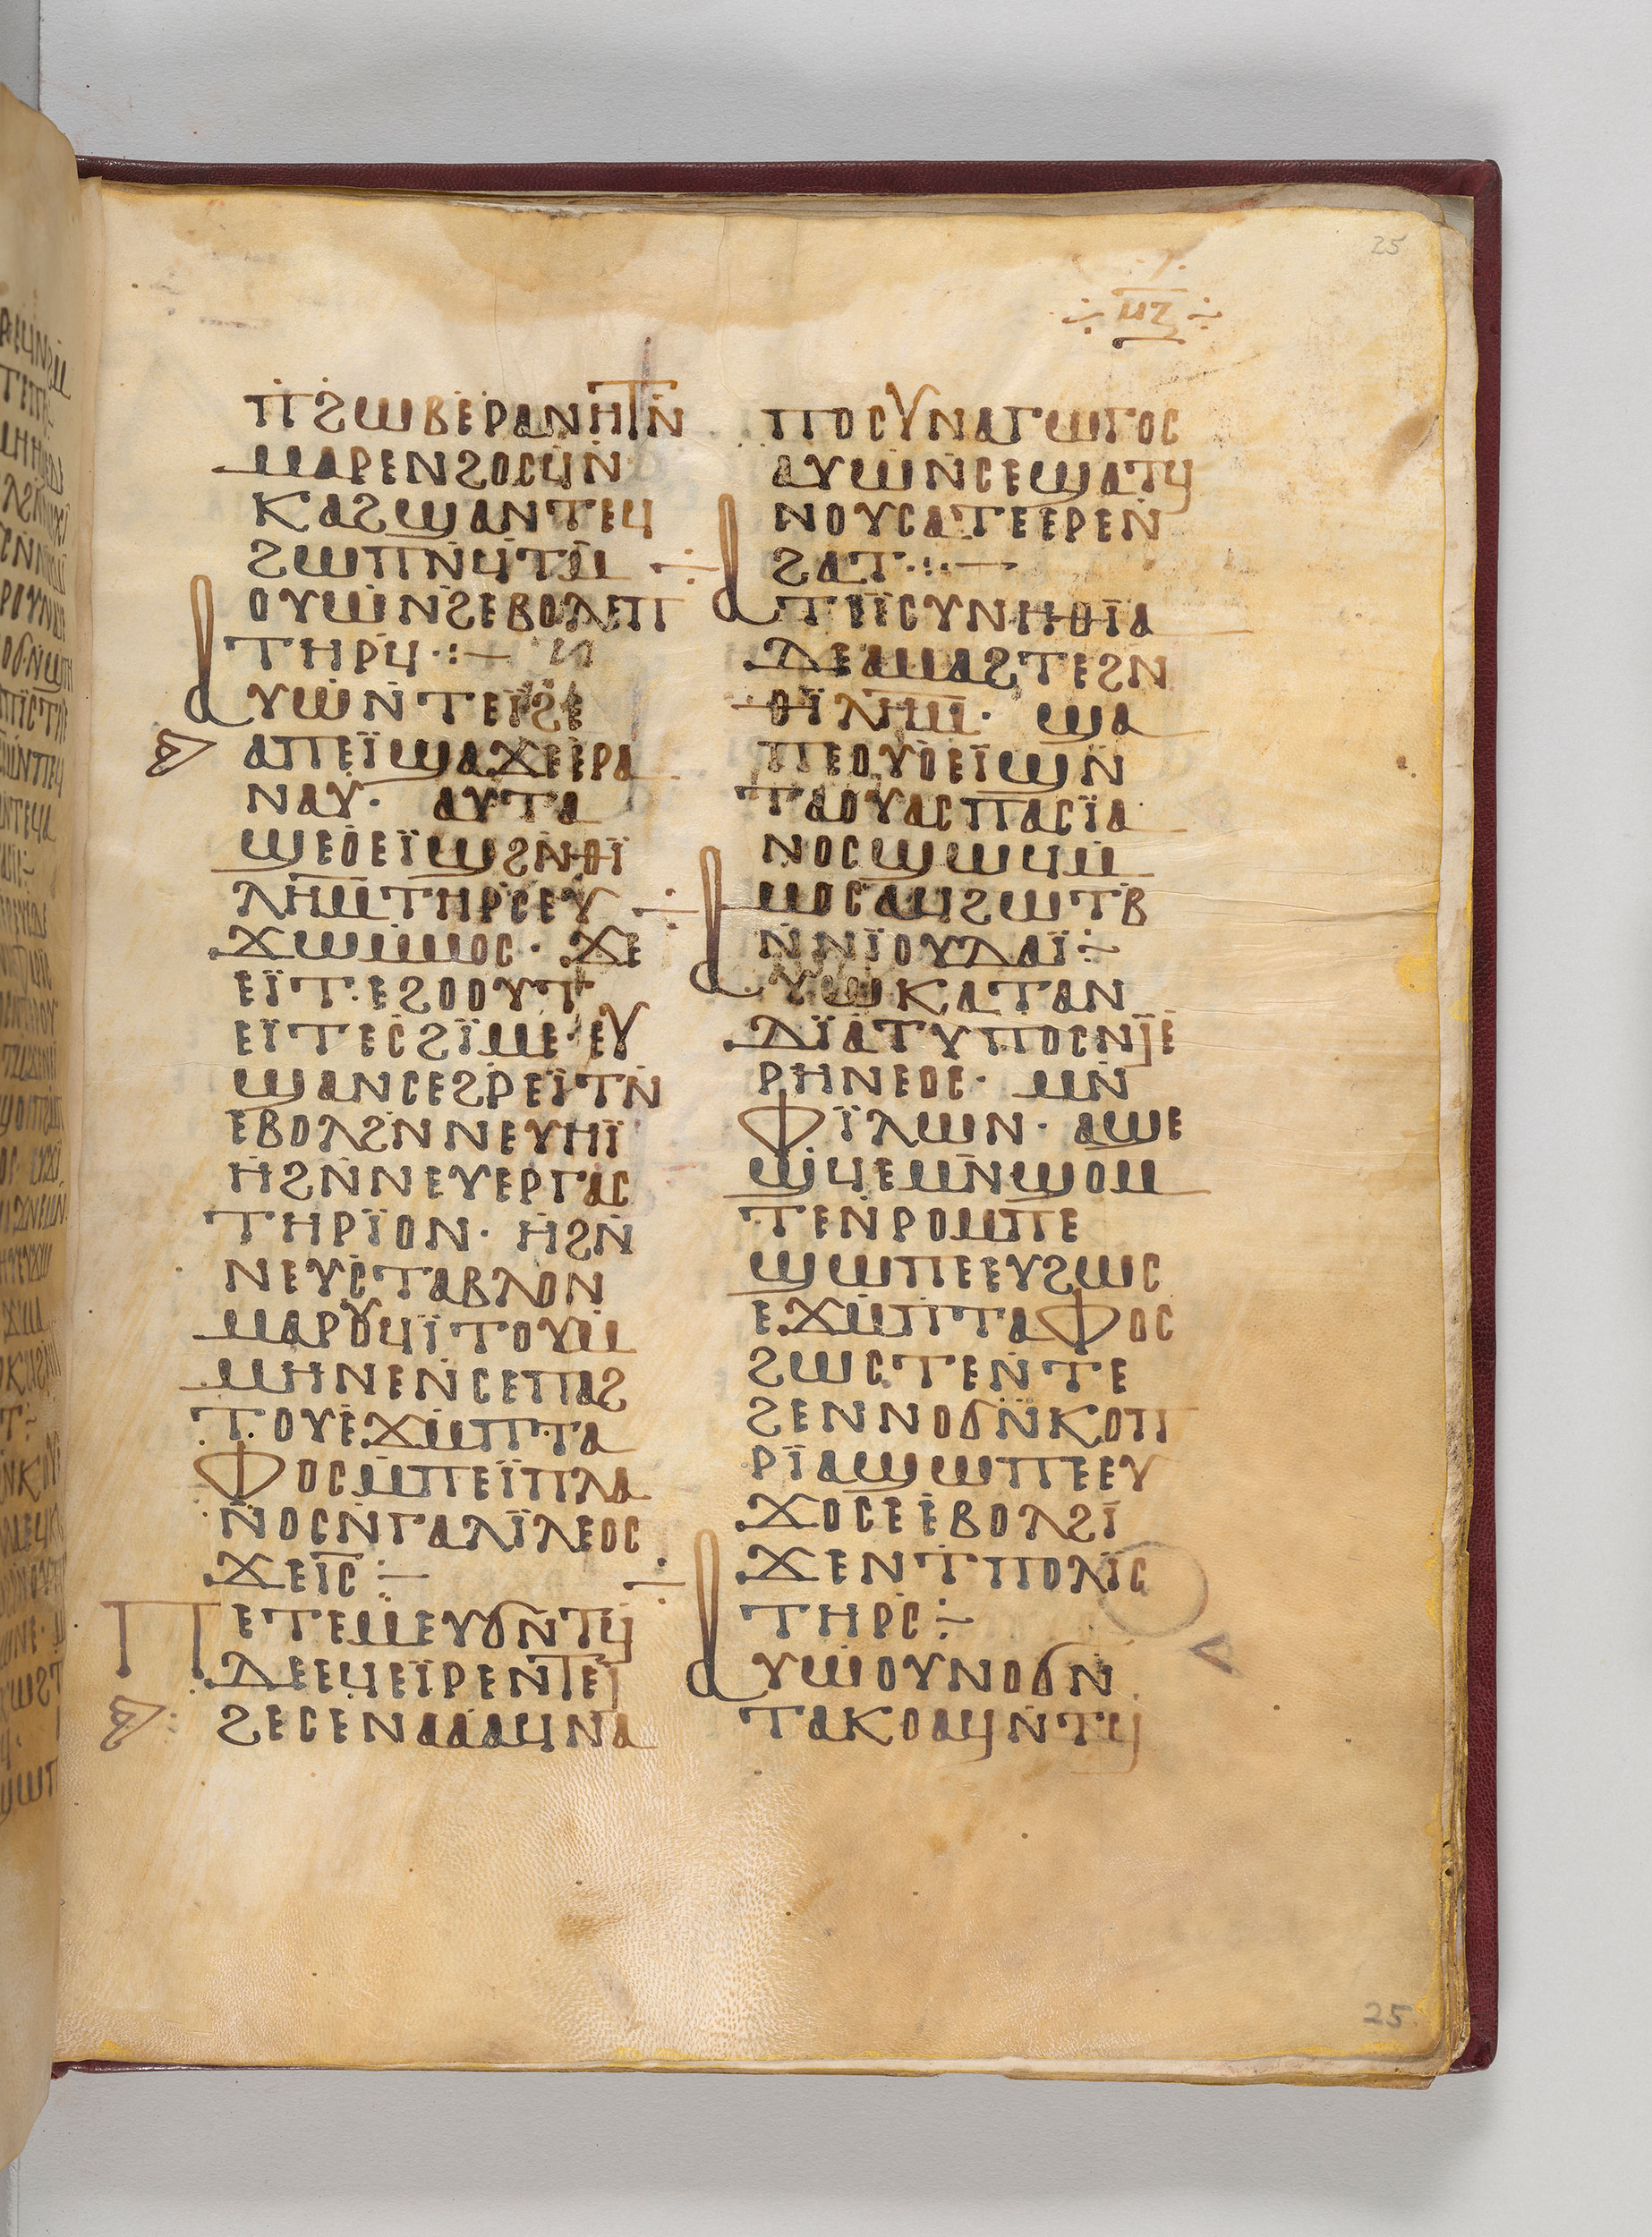 25
ⲙⲍ
ⲡϩⲱⲃⲉⲣⲁⲛⲏⲧⲛ
ⲙⲁⲣⲉⲛϩⲟⲥϥⲛ
ⲕⲁϩϣⲁⲛⲧⲉϥ
ϩⲱⲡⲛϥⲧⲙ
ⲟⲩⲱⲛϩⲉⲃⲟⲗⲉⲡ
ⲧⲏⲣϥ·:—
ⲁⲩⲱⲛⲧⲉⲓ̈ϩⲉ
ⲁⲡⲉⲓ̈ϣⲁϫⲉⲉⲣⲁ
ⲛⲁⲩ· ⲁⲩⲧⲁ
ϣⲉⲟⲉⲓ̈ϣϩⲛⲑⲓ̈
ⲗⲏⲙⲧⲏⲣⲥⲉⲩ
ϫⲱⲙⲙⲟⲥ· ϫⲉ
ⲉⲓ̈ⲧ·ⲉϩⲟⲟⲩⲧ
ⲉⲓ̈ⲧⲉⲥϩⲓ̈ⲙⲉ·ⲉⲩ
ϣⲁⲛⲥⲉϩⲣⲉⲓ̈ⲧⲛ
ⲉⲃⲟⲗϩⲛⲛⲉⲩⲏⲓ̈
ⲏϩⲛⲛⲉⲩⲉⲣⲅⲁⲥ
ⲧⲏⲣⲓ̈ⲟⲛ· ⲏϩⲛ
ⲛⲉⲩⲥⲧⲁⲃⲗⲟⲛ
ⲙⲁⲣⲟⲩϥⲓ̈ⲧⲟⲩⲙ
ⲙⲏⲛⲉⲛⲥⲉⲡⲁϩ
ⲧⲟⲩⲉϫⲙⲡⲧⲁ
ⲫⲟⲥⲙⲡⲉⲓ̈ⲡⲗⲁ
ⲛⲟⲥⲛⲅⲁⲗⲓ̈ⲗⲉⲟⲥ
ϫⲉⲓ̅ⲥ̅ ÷
ⲡⲉⲧⲉⲙⲉⲩϭⲛⲧϥ
ⲇⲉⲉϥⲉⲓ̈ⲣⲉⲛⲧⲉⲓ̈
ϩⲉⲥⲉⲛⲁⲁⲁϥⲛⲁ
ⲡⲟⲥⲩⲛⲁⲅⲱⲅⲟⲥ
ⲁⲩⲱⲛⲥⲉϣⲁⲧϥ
ⲛⲟⲩⲥⲁⲧⲉⲉⲣⲉⲛ
ϩⲁⲧ·:·—
ⲁⲧⲉⲓ̈ⲥⲩⲛⲏⲑⲓ̈ⲁ
ⲇⲉⲁⲙⲁϩⲧⲉϩⲛ
ⲑⲓ̈ⲗⲏⲙ· ϣⲁ
ⲡⲉⲟⲩⲟⲉⲓ̈ϣⲛ
ⲧⲁⲟⲩⲁⲥⲡⲁⲥⲓ̈ⲁ
ⲛⲟⲥϣⲱϥⲙ
ⲙⲟⲥⲁϥϩⲱⲧⲃ
ⲛⲛⲓ̈ⲟⲩⲇⲁⲓ̈÷
ⲁⲩⲱⲕⲁⲧⲁⲛ
ⲇⲓ̈ⲁⲧⲩⲡⲟⲥⲛⲓ̈ⲉ
ⲣⲏⲛⲉⲟⲥ· ⲙⲛ
ⲫⲓ̈ⲗⲱⲛ· ⲁϣⲉ
ϣϥⲉⲙⲛϣⲟⲙ
ⲧⲉⲛⲣⲟⲙⲡⲉ
ϣⲱⲡⲉⲉⲩϩⲱⲥ
ⲉϫⲙⲡⲧⲁⲫⲟⲥ
ϩⲱⲥⲧⲉⲛⲧⲉ
ϩⲉⲛⲛⲟϭⲛⲕⲟⲡ
ⲣⲓ̈ⲁϣⲱⲡⲉⲉⲩ
ϫⲟⲥⲉⲉⲃⲟⲗϩⲓ̈
ϫⲉⲛⲧⲡⲟⲗⲓ̈ⲥ
ⲧⲏⲣⲥ÷
ⲁⲩⲱⲟⲩⲛⲟϭⲛ
ⲧⲁⲕⲟⲁϥⲛⲧϥ
25